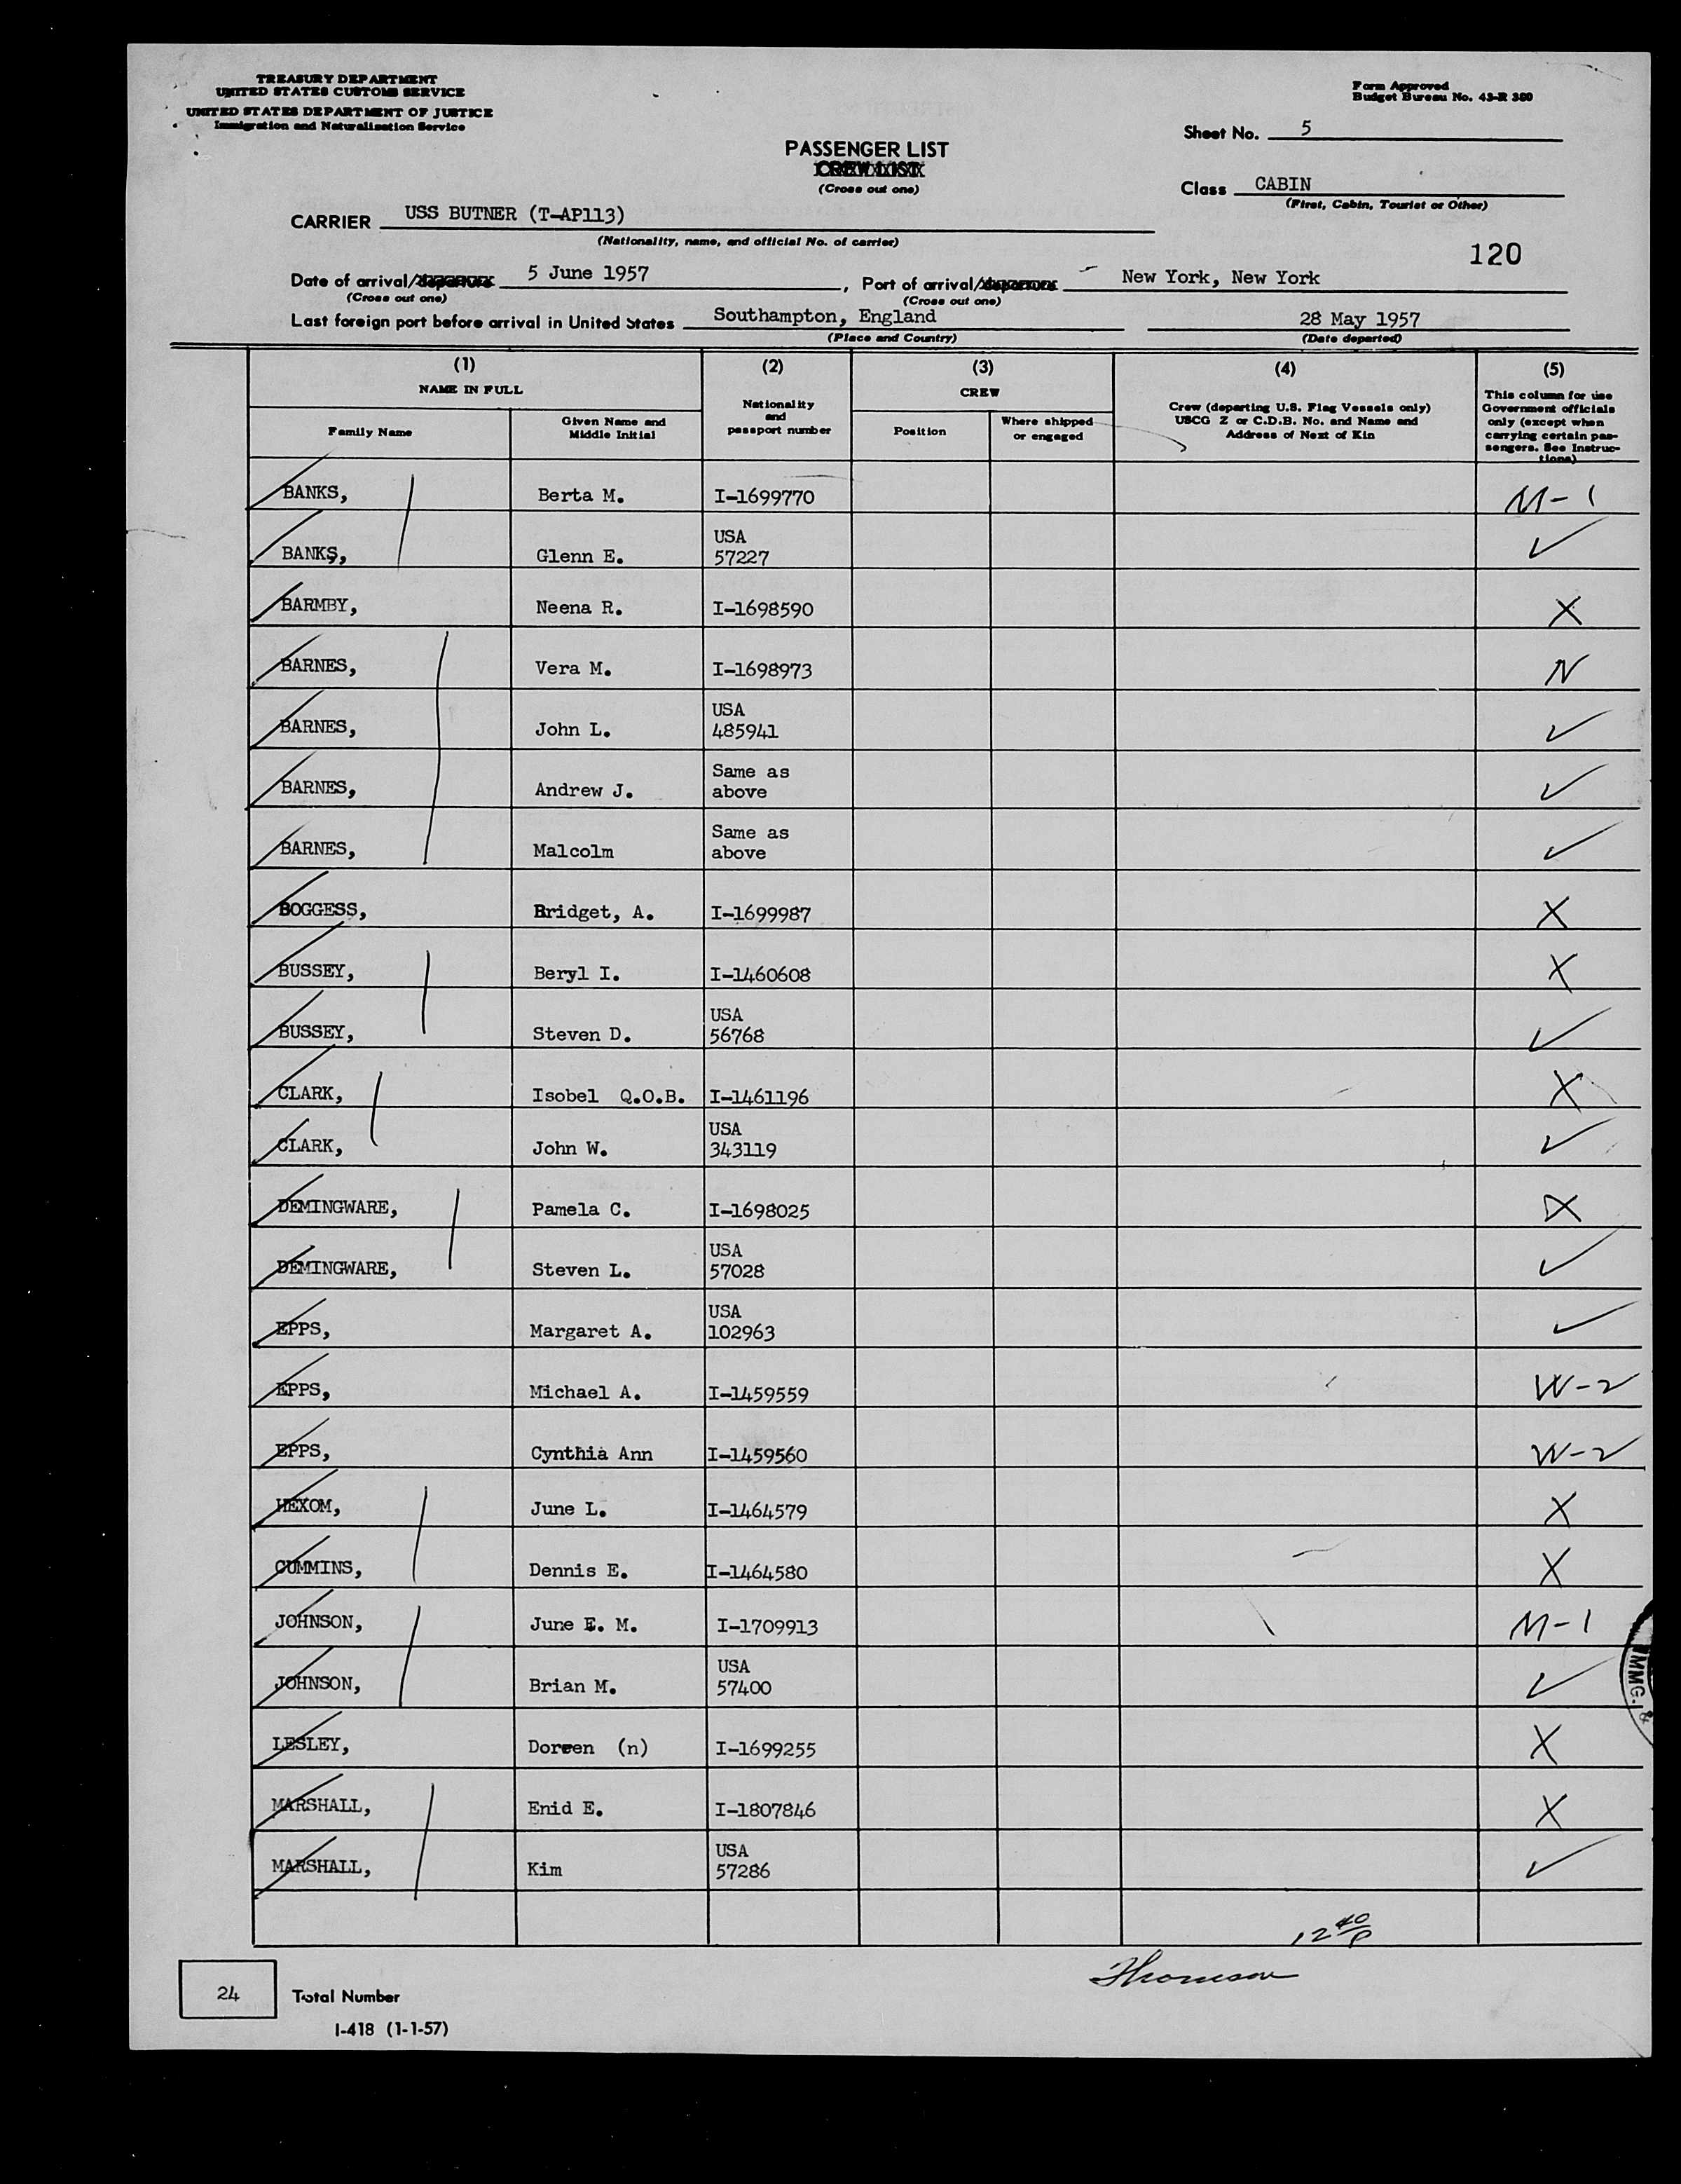 TREASURY DEPARTMENT
UNITED STATES CUSTOMS SERVICE
UNITED STATES DEPARTMENT OF JUSTICE
Immigration and Naturalization Service
Form Approved
Budget Bureau No. 43-R 380
Sheet No. 5
PASSENGER LIST
CREW LIST
(Cross out one)
Class CABIN
(First, Cabin, Tourist or Other)
CARRIER USS BUTNER (T-AP113)
(Nationality, name, and official No. of carrier)
120
Date of arrival/departure 5 June 1957, Port of arrival/departure New York, New York
(Cross out one) (Cross out one)
Last foreign port before arrival in United States Southampton, England 28 May 1957
(Place and Country) (Date departed)
(1) (2) (3) (4) (5)
NAME IN FULL
Family Name
Given Name and
Middle Initial
Nationality
and
passport number
CREW
Position
Where shipped
or engaged
Crew (departing U.S. Flag Vessels only)
USCG Z or C.D.B. No. and Name and
Address of Next of Kin
This column for use
Government officials
only (except when
carrying certain pas-
sengers. See Instruc-
tions)
BANKS, Berta M. I-1699770 M-1
BANKS, Glenn E. USA 57227 ✓
BARMBY, Neena R. I-1698590 X
BARNES, Vera M. I-1698973 N
BARNES, John L. USA 485941 ✓
BARNES, Andrew J. Same as above ✓
BARNES, Malcolm Same as above ✓
BOGGESS, Bridget, A. I-1699987 X
BUSSEY, Beryl I. I-1460608 X
BUSSEY, Steven D. USA 56768 ✓
CLARK, Isobel Q.O.B. I-1461196 X
CLARK, John W. USA 343119 ✓
DEMINGWARE, Pamela C. I-1698025 X
DEMINGWARE, Steven L. USA 57028 ✓
EPPS, Margaret A. USA 102963 ✓
EPPS, Michael A. I-1459559 W-2
EPPS, Cynthia Ann I-1459560 W-2
HEXOM, June L. I-1464579 X
CUMMINS, Dennis E. I-1464580 X
JOHNSON, June E. M. I-1709913 M-1
JOHNSON, Brian M. USA 57400 ✓
LESLEY, Doreen (n) I-1699255 X
MARSHALL, Enid E. I-1807846 X
MARSHALL, Kim USA 57286 ✓
IMMG. &
12 40 P
Thomson
24 Total Number
I-418 (1-1-57)